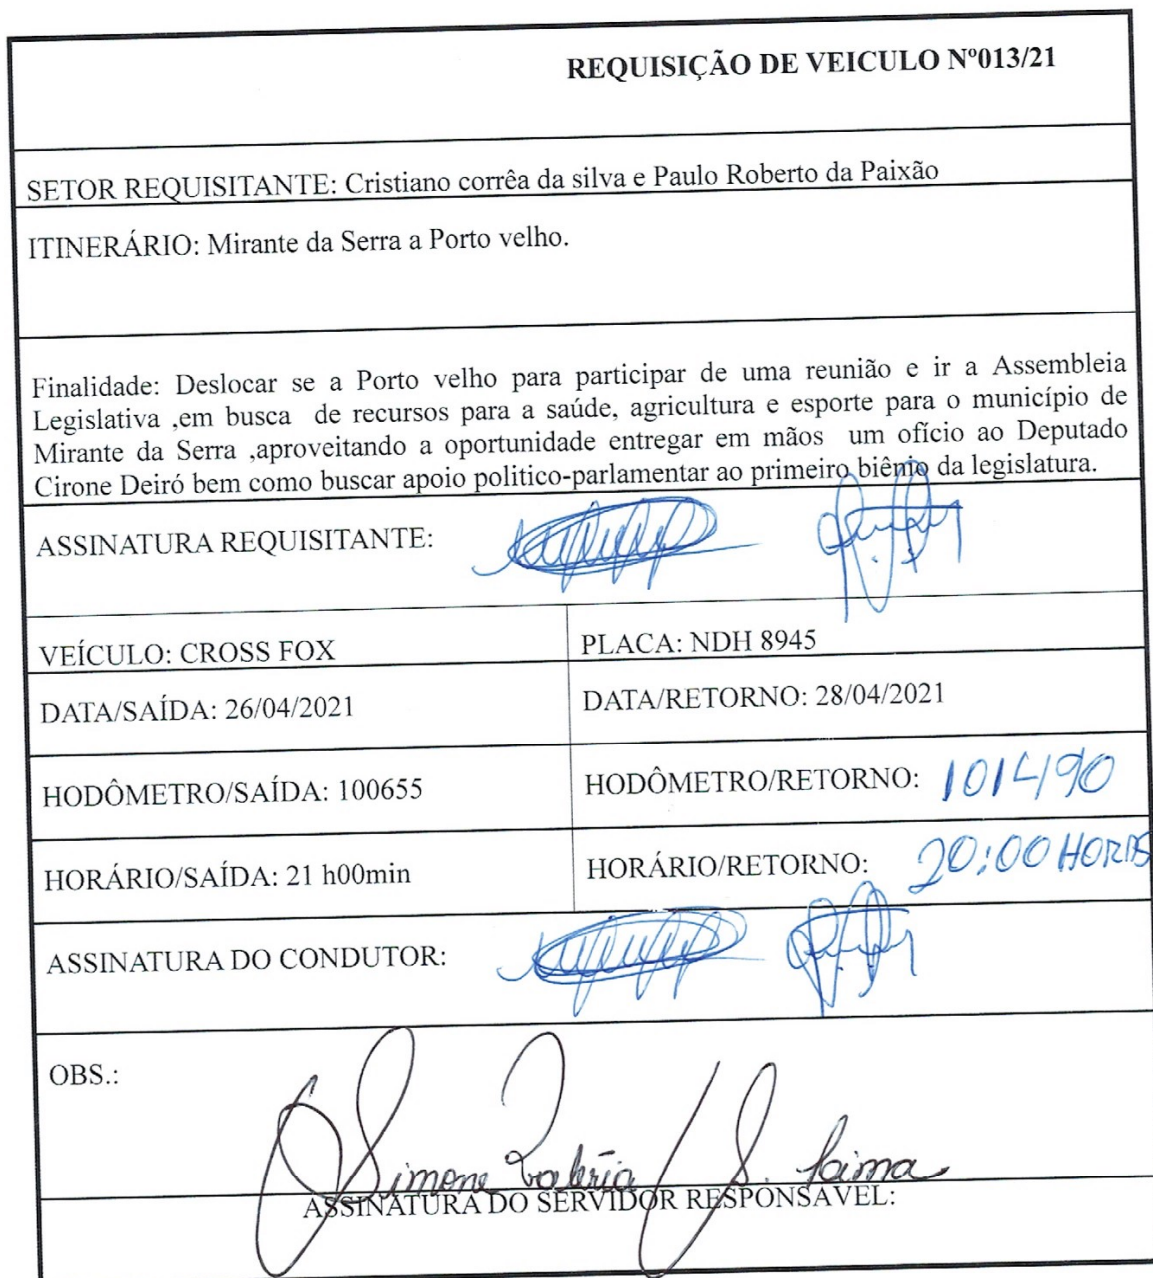 REQUISIÇÃO DE VEICULO Nº013/21
SETOR REQUISITANTE: Cristiano corrêa da silva e Paulo Roberto da Paixão
ITINERÁRIO: Mirante da Serra a Porto velho.
Finalidade: Deslocar se a Porto velho para participar de uma reunião e ir a Assembleia
Legislativa ,em busca de recursos para a saúde, agricultura e esporte para o município de
Mirante da Serra ,aproveitando a oportunidade entregar em mãos um ofício ao Deputado
Cirone Deiró bem como buscar apoio politico-parlamentar ao primeiro biênio da legislatura.
ASSINATURA REQUISITANTE:
VEÍCULO: CROSS FOX PLACA: NDH 8945
DATA/SAÍDA: 26/04/2021 DATA/RETORNO: 28/04/2021
HODÔMETRO/SAÍDA: 100655 HODÔMETRO/RETORNO: 101490
HORÁRIO/SAÍDA: 21 h00min HORÁRIO/RETORNO: 20:00 HORAS
ASSINATURA DO CONDUTOR:
OBS.:
Simone Valéria
ASSINATURA DO SERVIDOR RESPONSÁVEL: